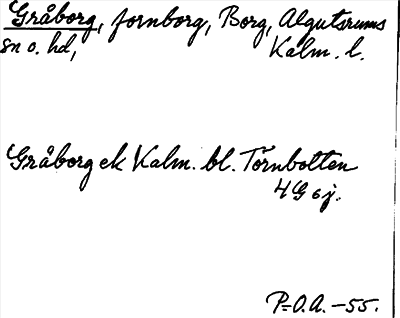 Gråborg, fornborg, Borg, Algutsrums
sn o. hd, Kalm. l.
Gråborg ek Kalm. bl. Törnbotten
4G 6j.
P=O.A. -55.